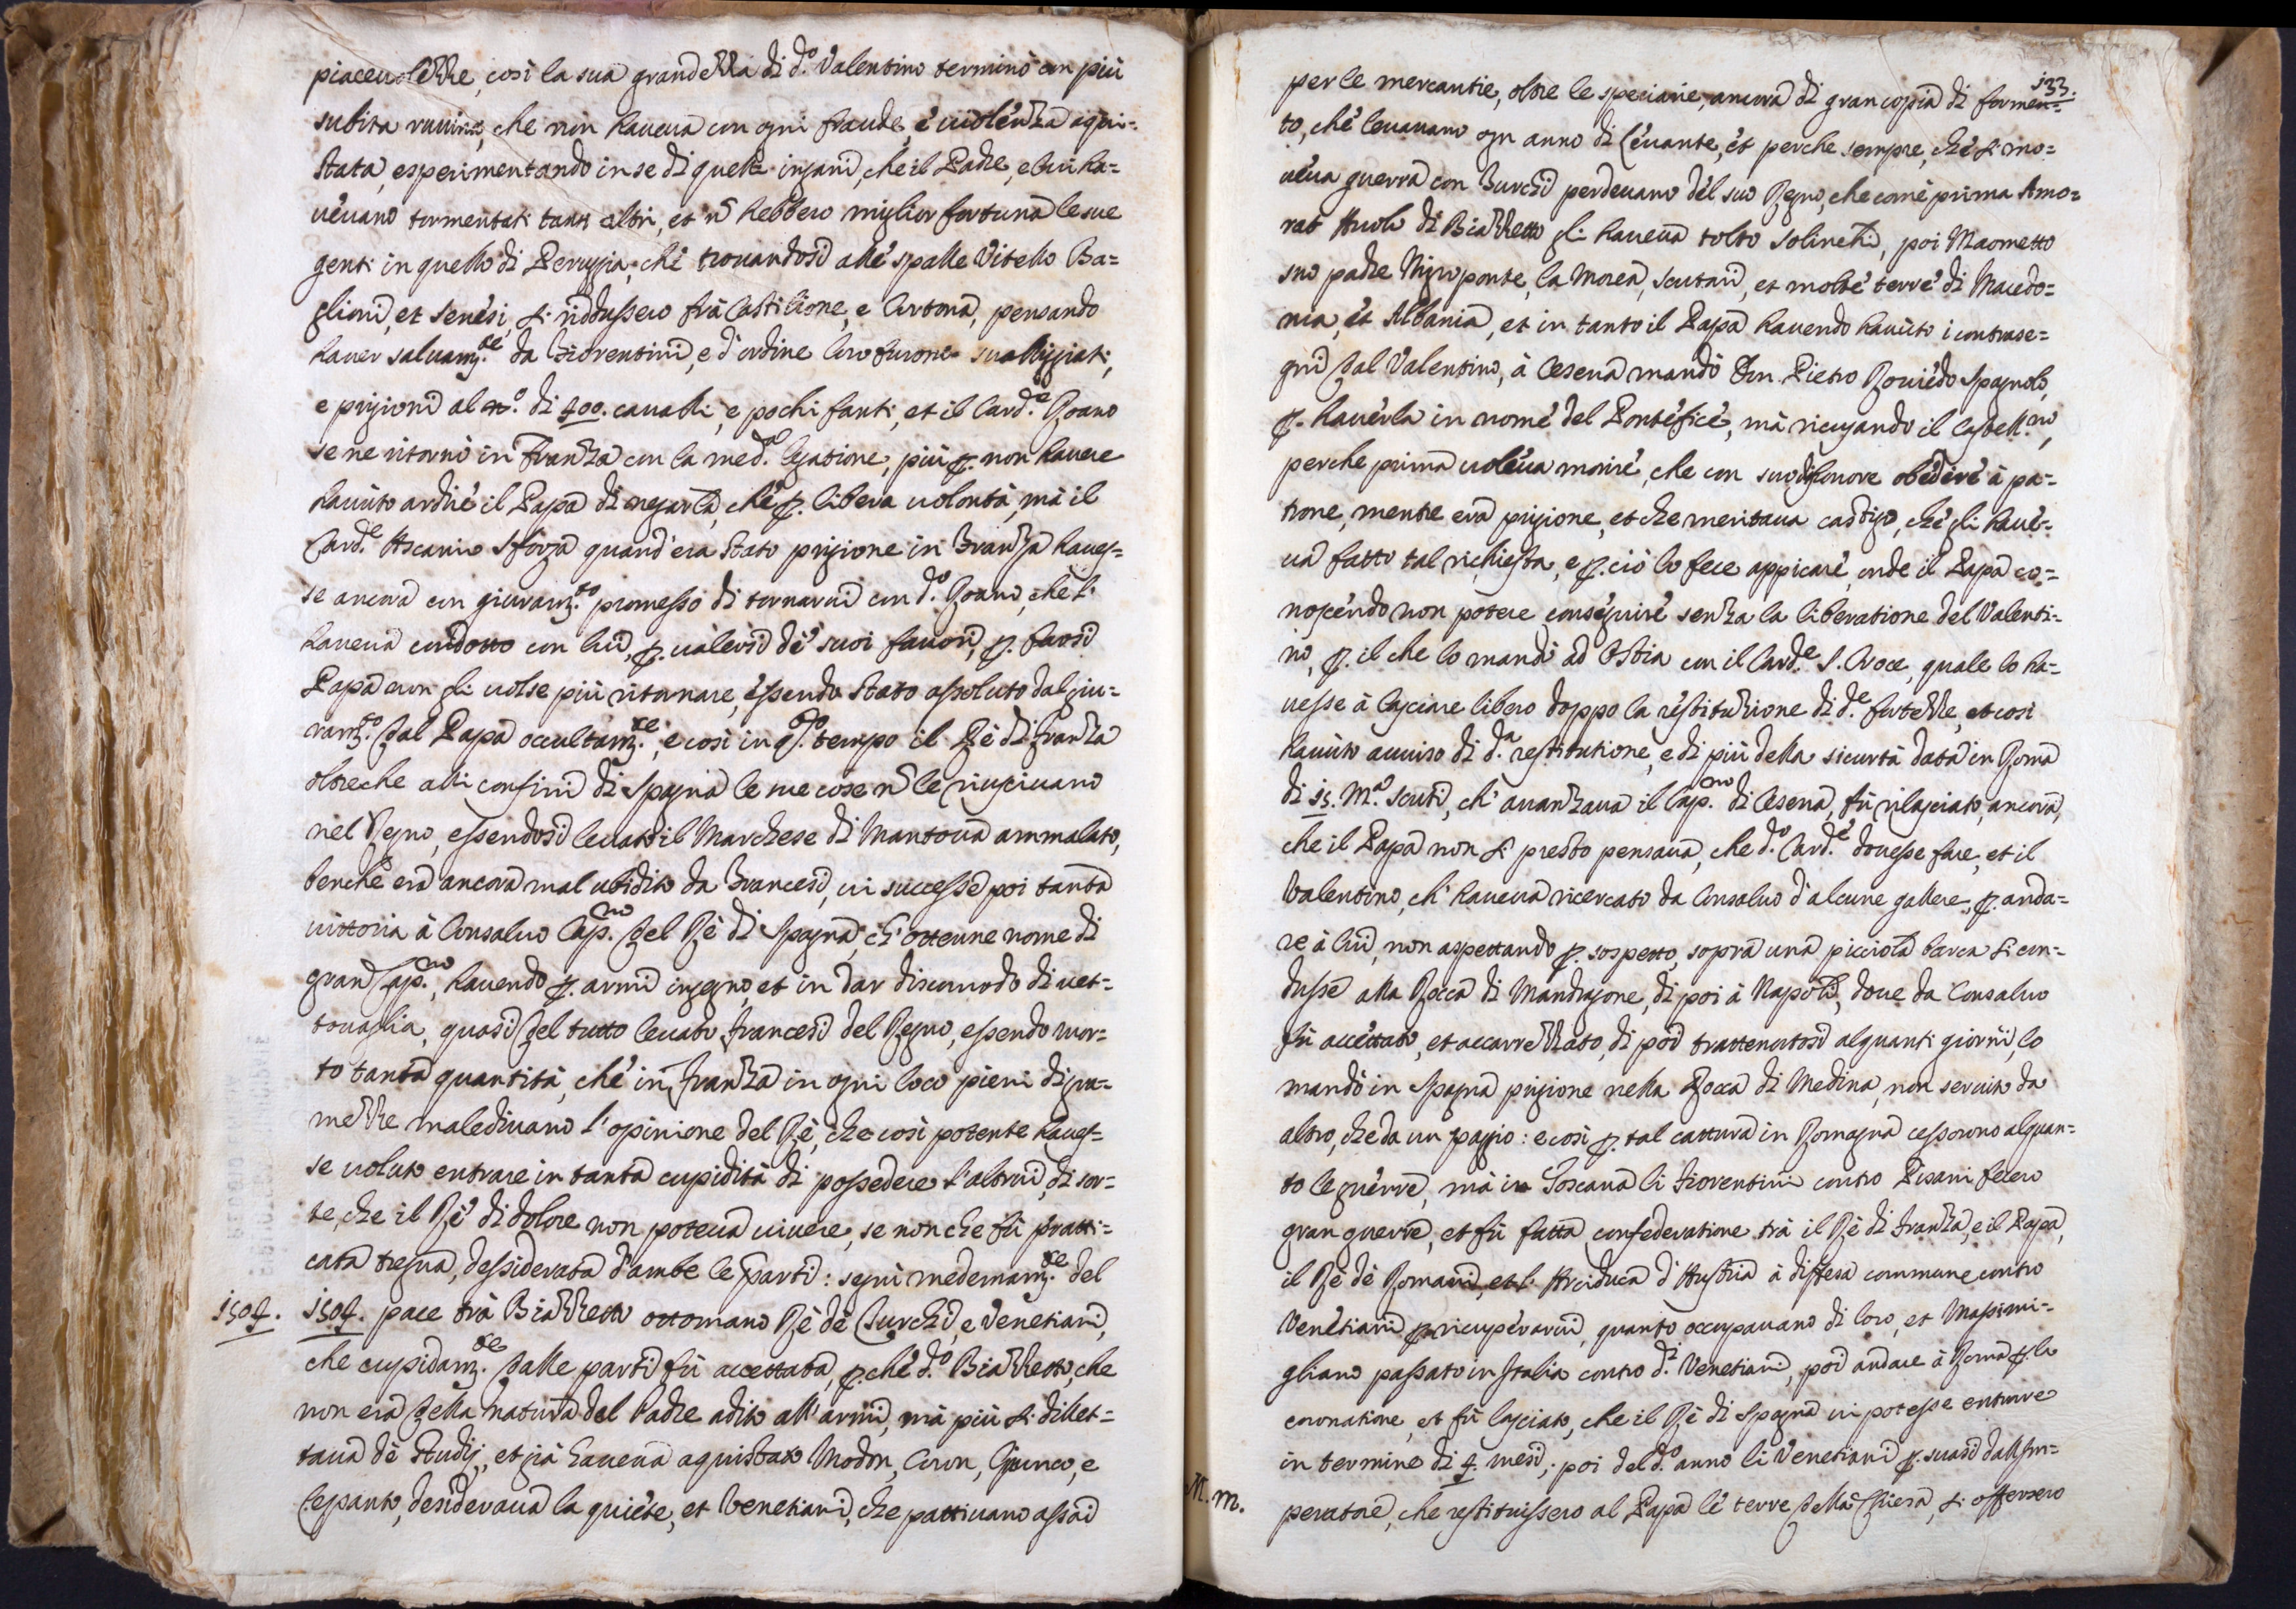 piaceuolezze, così la sua grandezza di d.º Valentino terminò con più
subita ruuina, che non haueua con ogni fraude, è uiolenza aqui=
stata, esperimentando in se di quelli inganni, che il Padre, e lui ha=
ueuano tormentati tanti altri, et nõ hebbero miglior fortuna le sue
genti in quello di Peruggia, che trouandosi alle spalle Vitello Ba=
glioni, et Senesi, si riddussero frà Castilione, e Cortona, pensando
hauer saluam.te da Fiorentini, e d'ordine loro furono sualliggiati,
e prigioni al n.º di 400. caualli, e pochi fanti, et il Card.e Roano
se ne ritornò in Franza con la med.ª legatione, più p. non hauere
hauuto ardire il Papa di negarla, che p. libera uolontà, mà il
Card.e Ascanio Sforza quand'era stato prigione in Franza haues=
se ancora con giuram.to promesso di tornarui con d.º Roano, che l'
haueua condotto con lui, p. ualersi de suoi fauori, p. farsi
Papa non gli uolse più ritornare, essendo stato assoluto dal giu=
ram.to dal Papa occultam.te, e così in q.sto tempo il Rè di Franza
oltreche alli confini di Spagna le sue cose nõ le riusciuano
nel Regno, essendosi leuato il Marchese di Mantoua ammalato,
benche era ancora mal ubidito da Francesi, ui successe poi tanta
uittoria à Consaluo Cap.no del Rè di Spagna, ch'ottenne nome di
gran Cap.no, hauendo p. armi ingegno, et in dar discomodo di uet=
touaglia, quasi del tutto leuato Francesi del Regno, essendo mor=
to tanta quantità, che in Franza in ogni loco pieni di gra=
mezze malediuano l'opinione del Rè, che così potente haues=
se uoluto entrare in tanta cupidità di possedere l'altrui, di sor=
te, che il Rè di dolore non poteua uiuere, se non che fù pratti=
cata tregua, dessiderata d'ambe le parti: seguì medemam.te del
1504. 1504. pace trà Biazzetto ottomano Rè de Turchi, e Venetiani,
che cupidam.te dalle parti fù accettata, p.che d.º Biazzetto, che
non era della natura del Padre adito all'armi, mà più si dillet=
taua de Studij, et già haueua aquistato Modon, Coron, Giunco, e
Lepanto, desideraua la quiete, et Venetiani, che pattiuano assai
133.
per le mercantie, oltre le speciarie, ancora di gran copia di formen=
to, che leuauano ogn anno di Leuante, et perche sempre, che si mo=
ueua guerra con Turchi perdeuano del suo Regno, che come prima Amo=
rat Auolo di Biazzetto gli haueua tolto Solinichi, poi Maometto
suo padre Nigroponte, la Morea, Scutari, et molte terre di Macedo=
nia, et Albania, et in tanto il Papa hauendo hauuto i contrase=
gni dal Valentino, à Cesena mandò Don Pietro Rouiedo Spagnolo,
p. hauerla in nome del Pontefice, mà ricusando il Castell.no,
perche prima uoleua morire, che con suo disonore obedire à pa=
trone, mentre era prigione, et che meritaua castigo, che gli haue=
ua fatto tal richiesta, e p. ciò lo fece appicare, onde il Papa co=
noscendo non potere conseguire senza la liberatione del Valenti=
no, p. il che lo mandò ad Ostia con il Card.e S. Croce, quale lo ha=
uesse à lasciare libero doppo la restituzione di d.e fortezze, et così
hauuto auuiso di d.ª restitutione, e di più della sicurtà data in Roma
di 15. m.ª scudi, ch'auanzaua il Cap.no di Cesena, fù rilasciato, ancora,
che il Papa non sì presto pensaua, che d.º Card.e douesse fare, et il
Valentino, ch'haueua ricercato da Consaluo d'alcune gallere, p. anda=
re à lui, non aspettando p. sospetto, sopra una picciola barca si con=
dusse alla Rocca di Mandragone, di poi à Napoli, doue da Consaluo
fù accettato, et accarrezzato, di poi trattenutosi alquanti giorni, lo
mandò in Spagna prigione nella Rocca di Medina, non seruito da
altro, che da un paggio: e così p. tal cattura in Romagna cessorono alquan=
to le guerre, mà in Toscana li Fiorentini contro Pisani fecero
gran guerra, et fù fatta confederatione trà il Rè di Franza, e il Papa,
il Rè de Romani, et l'Arciduca d'Austria à diffesa commune contro
Venetiani p. ricuperarui, quanto occupauano di loro, et Massimi=
gliano passato in Italia contro d.i Venetiani, poi andare à Roma p. la
coronatione, et fù lasciato, che il Rè di Spagna ui potesse entrare
in termine di 4. mesi; poi del d.º anno li Venetiani p.suasi dall'Im=
peratore, che restituissero al Papa le terre della Chiesa, si offersero
M. m.